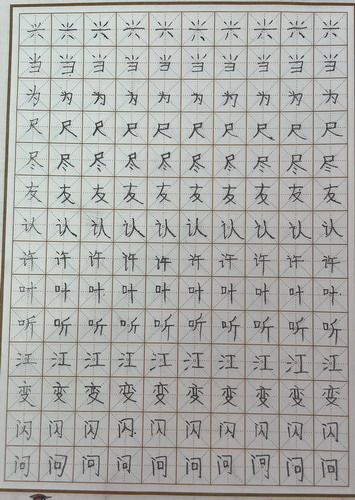 兴兴兴兴兴兴兴兴兴兴
当当当当当当当当当当
为为为为为为为为为为
尺尺尺尺尺尺尺尺尺尺
尽尽尽尽尽尽尽尽尽尽
友友友友友友友友友友
认认认认认认认认认认
许许许许许许许许许许
叶叶叶叶叶叶叶叶叶叶
听听听听听听听听听听
江江江江江江江江江江
变变变变变变变变变变
闪闪闪闪闪闪闪闪闪闪
问问问问问问问问问问